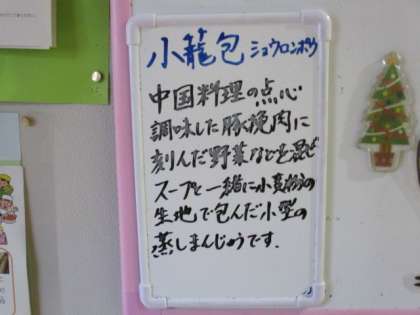 小籠包 ショウロンポウ
中国料理の点心
調味した豚挽肉に
刻んだ野菜などを混ぜ
スープと一緒に小麦粉の
生地で包んだ小型の
蒸しまんじゅうです.